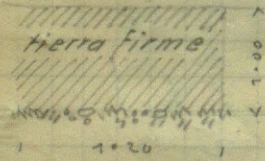 tierra firme
1.00
1.20